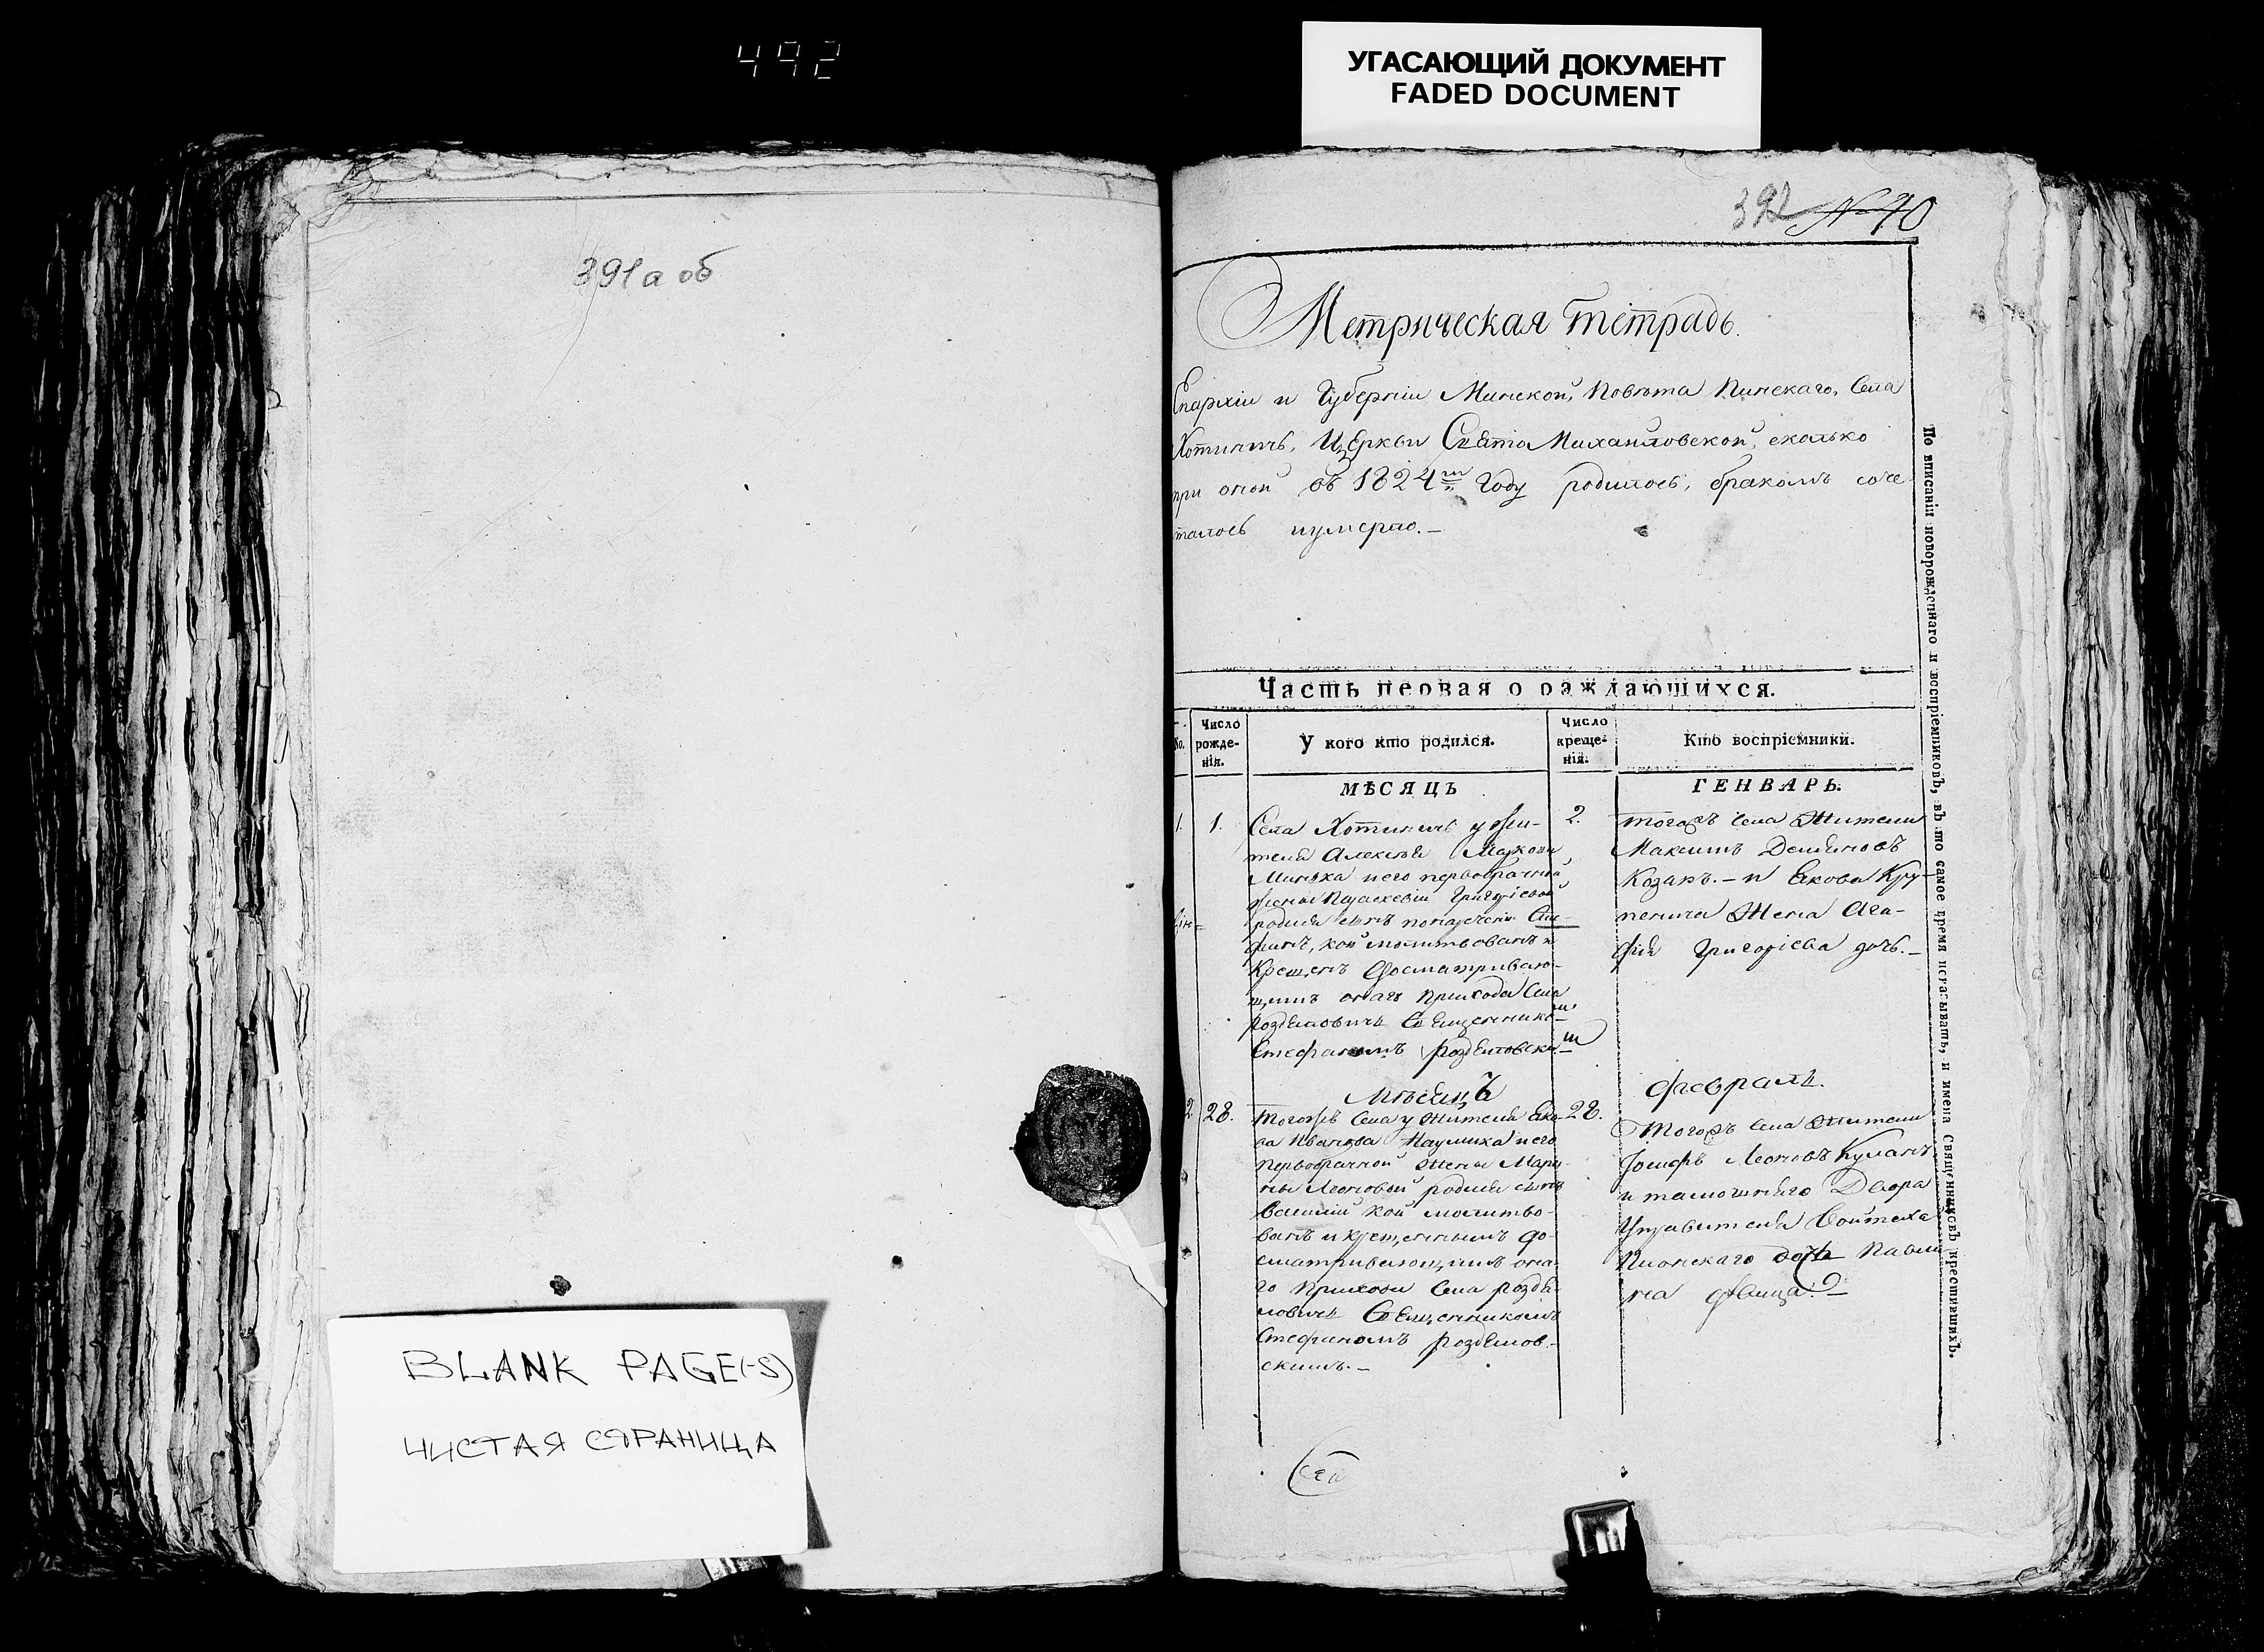 492
УГАСАЮЩИЙ ДОКУМЕНТ
FADED DOCUMENT
391а об
BLANK PAGE(-S)
ЧИСТАЯ СТРАНИЦА
392 № 40
Метрическая тетрадь.
Епархіи и Губерніи Минской, Повѣта Пинскаго, Села
Хотиничь, Церкви Свято Михайловской, сколько
при оной въ 1824м Году родилось, бракомъ соче
талось и умерло.—
Часть первая о раждающихся.
Число рожденія.
У кого кто родился.
Число крещенія.
Кто воспріемники.
МѢСЯЦЪ
ГЕНВАРЬ.
1. 1.
Села Хотиничь у жи-
теля Алексѣя
и его первобрачной
жены Параскевіи Григоріевой
родился сынъ
кой молитвованъ и
Крещенъ Досматриваю-
щимъ онаго Прихода Села
Роздяловичь Священникомъ
Стефаномъ Роздяловскимъ
2.
Тогожъ Села Жители
Максимъ Демяновъ
Козакъ.— и Якова Кру-
пенича Жена Ага-
фія Григоріева дочь.—
Мѣсяцъ
Февраль.
2. 28.
Тогожъ Села у Жителя Яко-
ва Иванова Наумика и его
Первобрачной Жены Мари-
ны Леоновой родился сынъ
Василій кой молитво-
ванъ и Крещеннымъ До-
сматривающимъ она-
го Прихода Села Роздя-
ловичь Священникомъ
Стефаномъ Роздялов-
скимъ.—
28.
Тогожъ Села Жители
Іосифъ Леоновъ Куланъ
и тамошняго Двора
Управителя Войтеха
дочь Павли
на дѣвица.
По вписаніи новорожденнаго и воспріемниковъ, въ то самое время показывать, и имена Священниковъ крестившихъ.